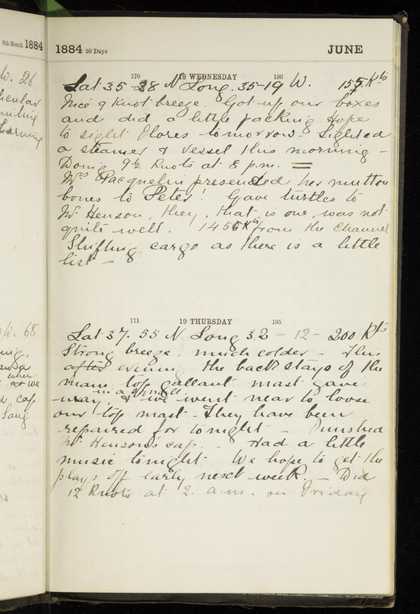 6th Month 1884
1884 30 Days JUNE
170 18 WEDNESDAY 196
Lat 35-28 N Long. 35-19 W. 155 Kts
Nice 9 Knot breeze. Got up our boxes
and did a little packing hope
to sight Flores tomorrow. Sighted
a steamer & vessel this morning -
Doing 9½ Knots at 8 p.m.
Mrs Jacquelin presented her mutton
bones to "Peter" Gave turtles to
Mr Henson, they, that is one was not
quite well. 1456 Kts from the Channel
Shifting cargo as there is a little
list -
171 19 THURSDAY 195
Lat 37. 55 N Long 32 - 12 - 200 Kts
Strong breeze. much colder - This
after evening the back stays of the
main top gallant mast gave
way, & we went near to loose
our top mast - They have been
repaired for tonight - finished
Mr Henson's cap - Had a little
music tonight We hope to get the
plays off early next week - Did
12 Knots at 2 a.m. on Friday
W. 26
W. 68